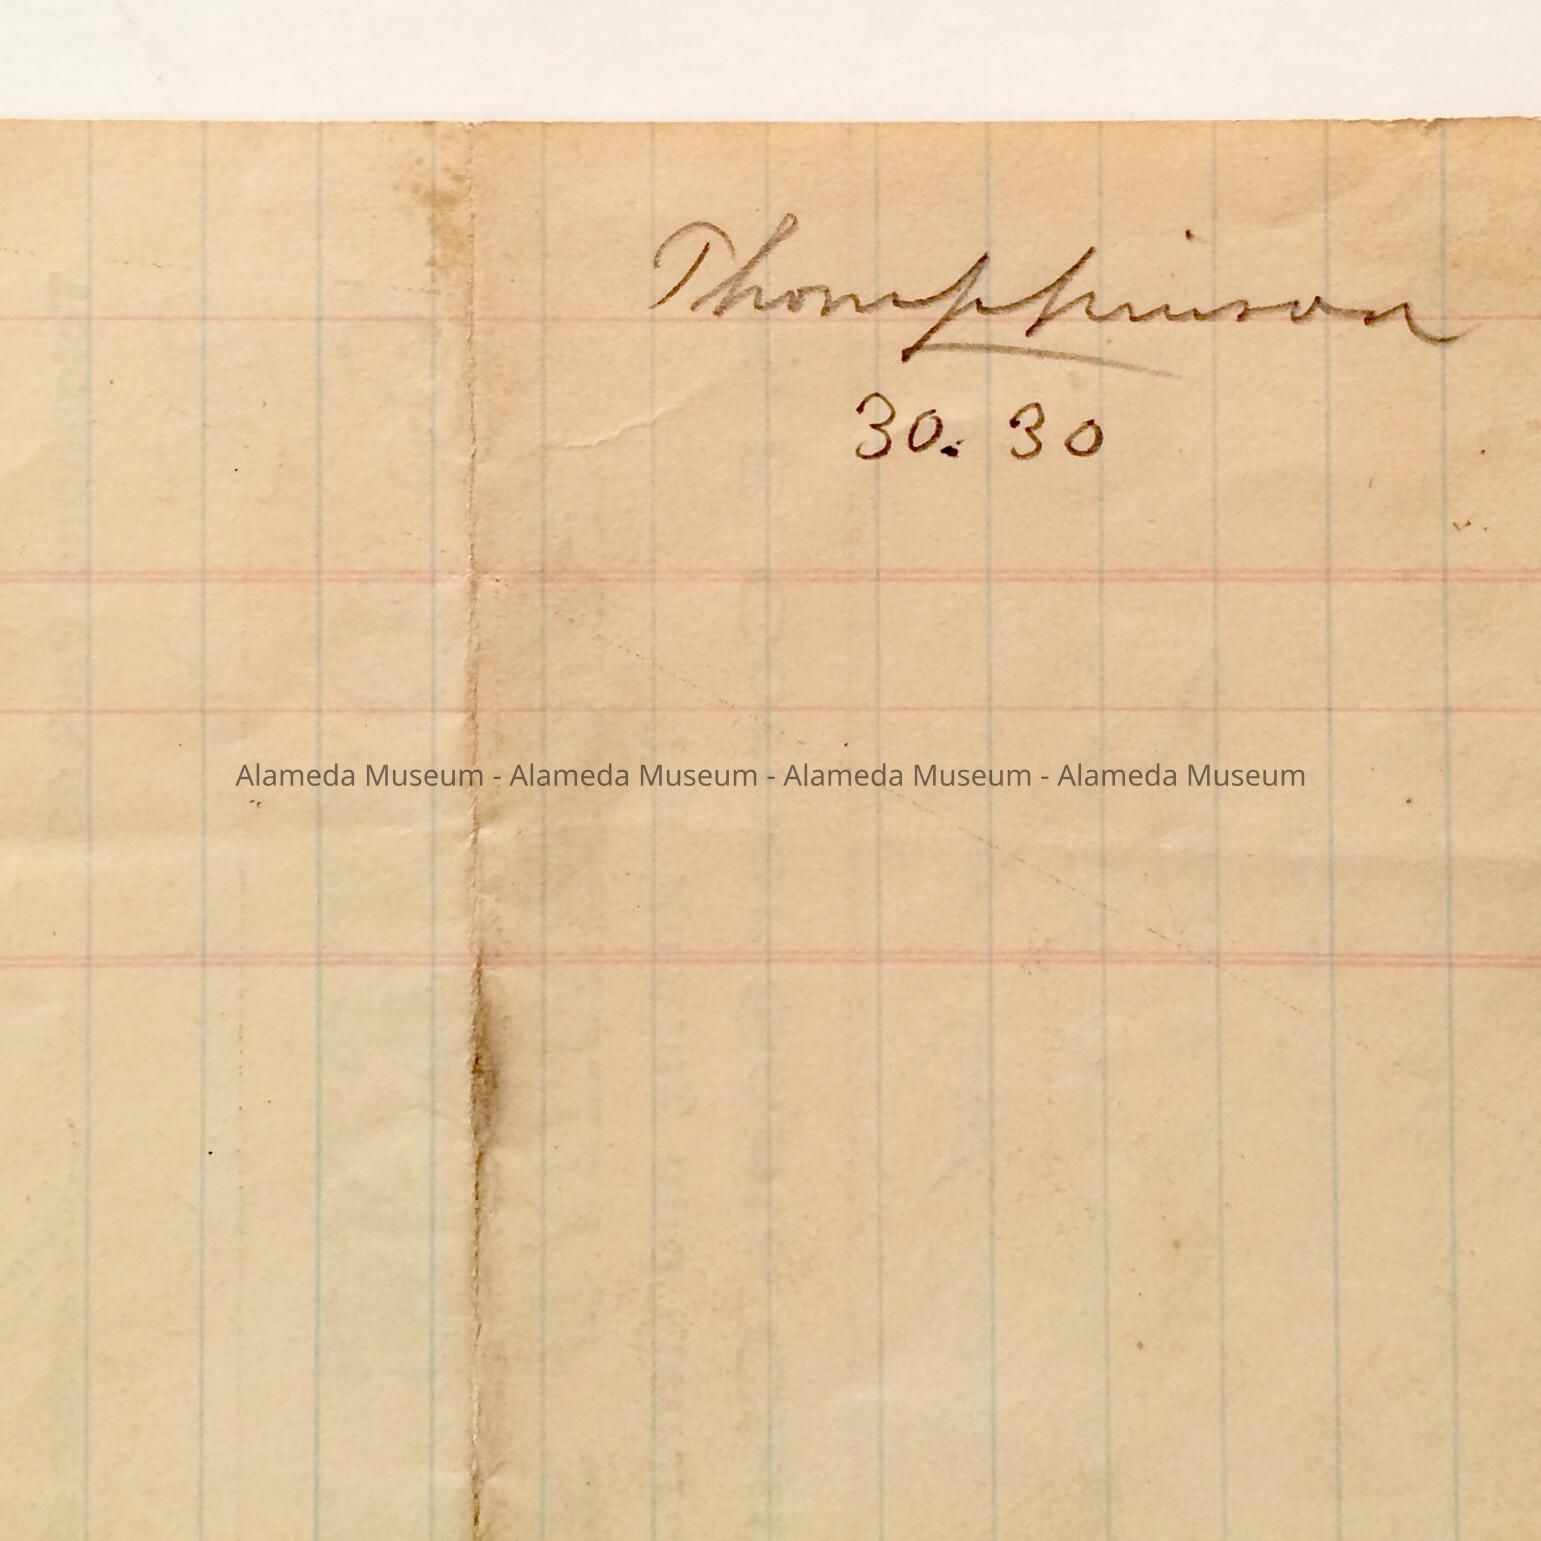 Thompkinson
30. 30
Alameda Museum - Alameda Museum - Alameda Museum - Alameda Museum